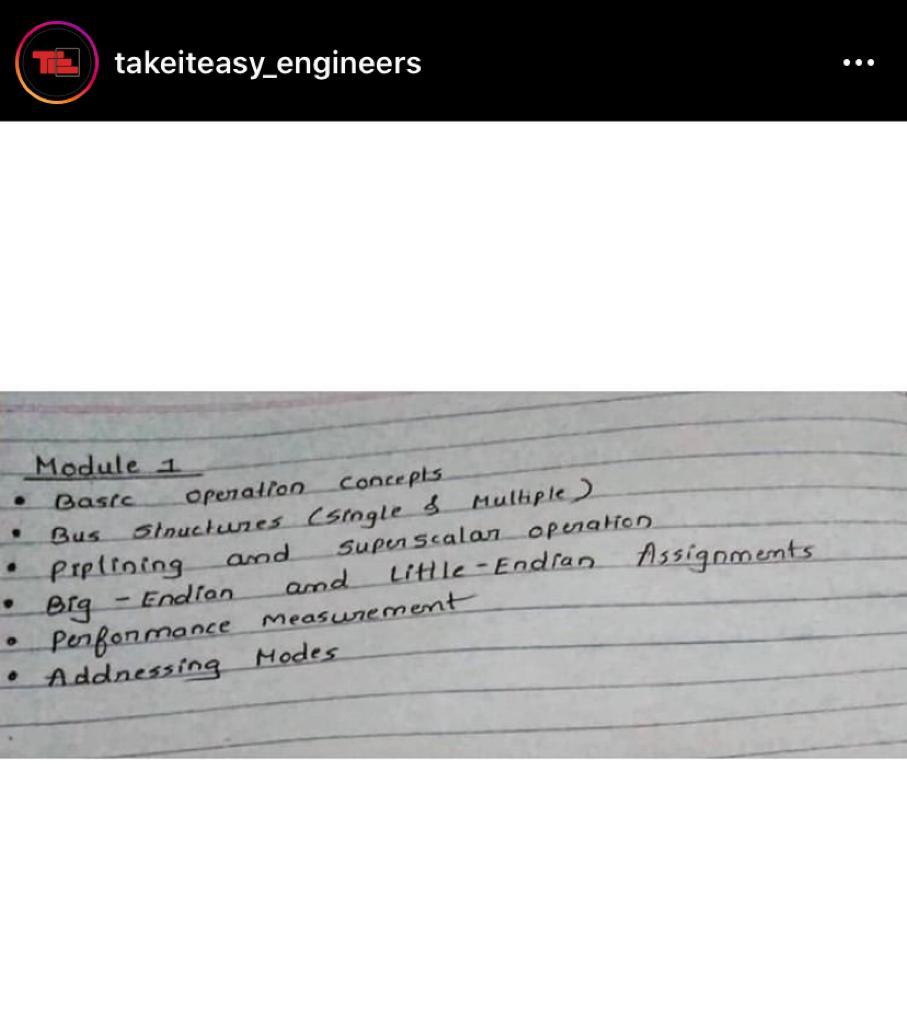 takeiteasy_engineers
Module 1
• Basic operation concepts
• Bus structures (single & Multiple)
• Piplining and superscalar operation
• Big - Endian and Little - Endian Assignments
• Performance Measurement
• Addressing Modes